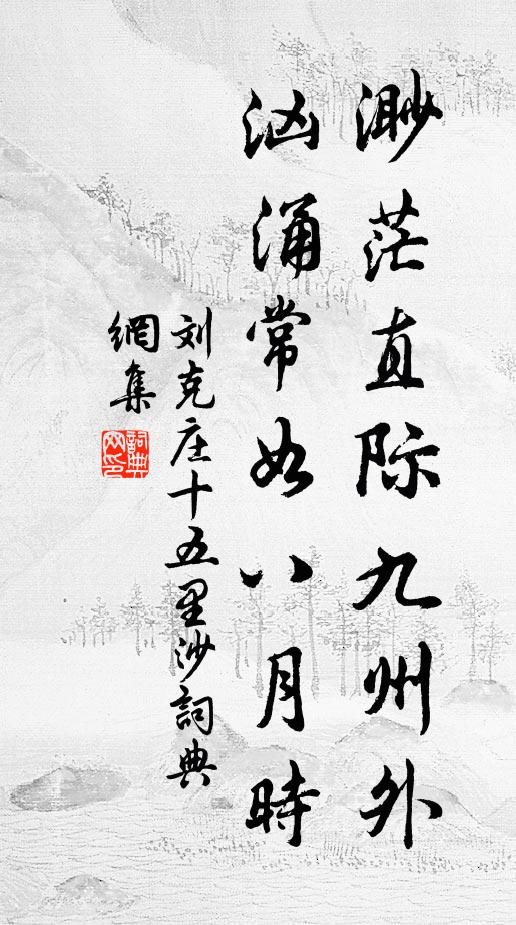 渺茫直际九州外
汹涌常如八月時
刘克庄十五里沙詞典
網集
詞典網印